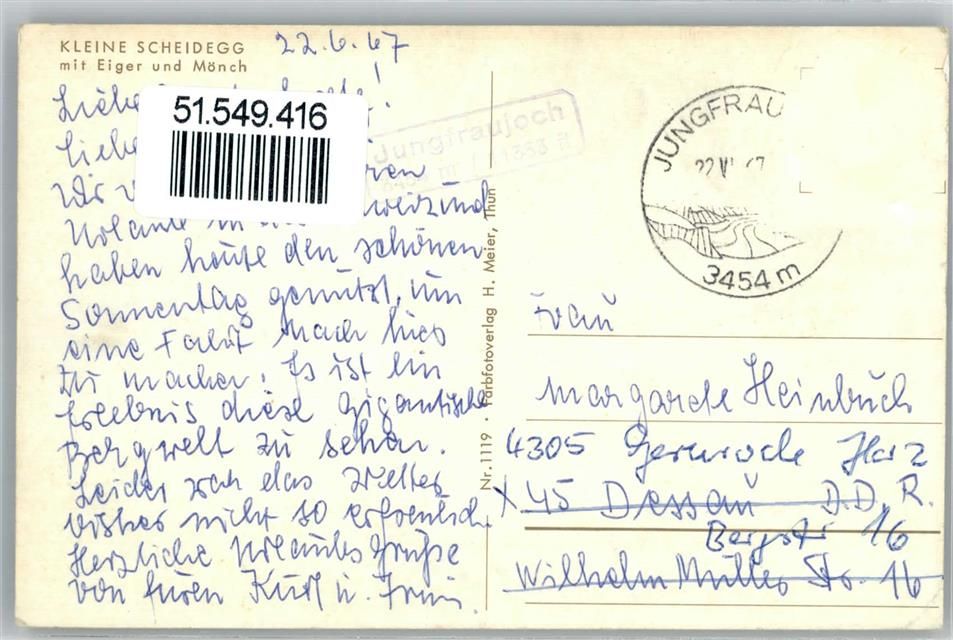 KLEINE SCHEIDEGG
mit Eiger und Mönch
22.6.67
51.549.416
Jungfraujoch
3454 m / 11333 ft
Liebe
Liebe
Wir
Urlaub in der Schweiz und
haben heute den schönen
Sonnentag genützt, um
eine Fahrt nach hier
zu machen. Es ist ein
Erlebnis diese gigantische
Bergwelt zu sehen.
Leider war das Wetter
bisher nicht so erfreulich.
Herzliche Urlaubs Grüße
von Euren Kurt u. Irmi.
Nr. 1119 · Farbfotoverlag H. Meier, Thun
JUNGFRAU
22 VI 67
3454 m
Frau
Margarete Heinbuch
4305 Gernrode Harz
X 45 Dessau D.D.R.
Bergstr 16
Wilhelm Müller Str. 16